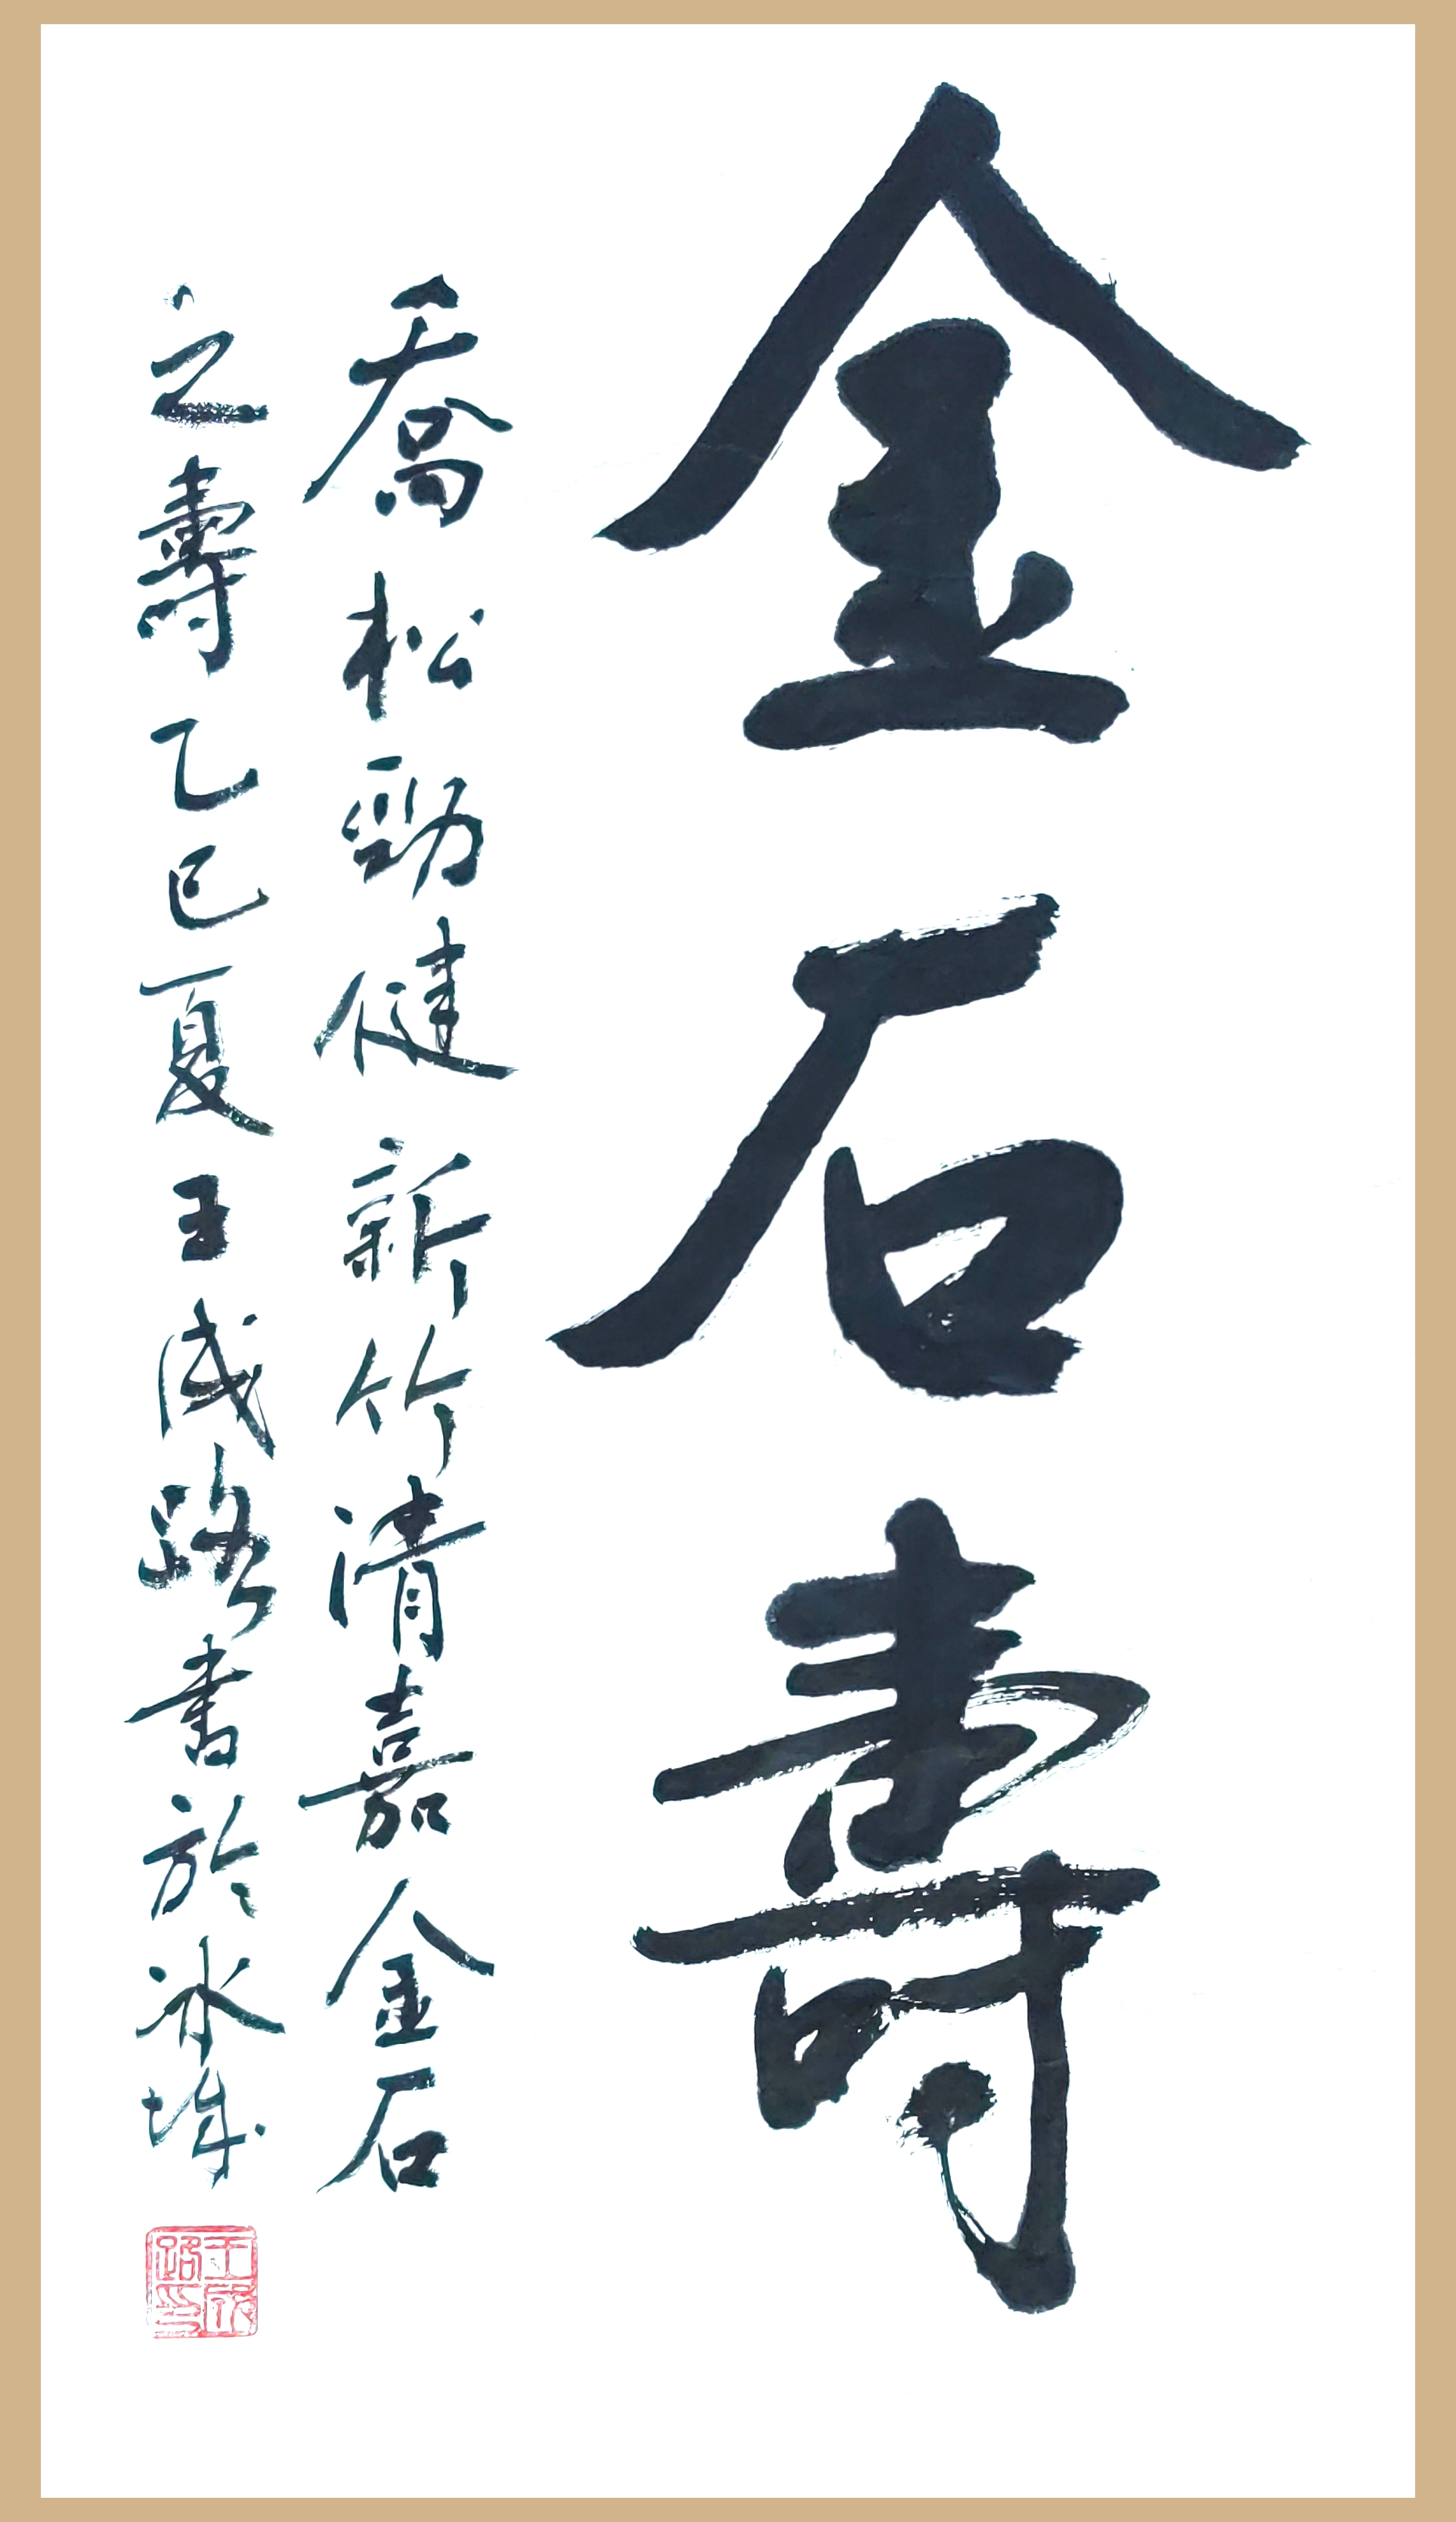 金石壽
喬松勁健新竹清嘉金石
之壽乙巳夏王成路書於冰城
王成路印